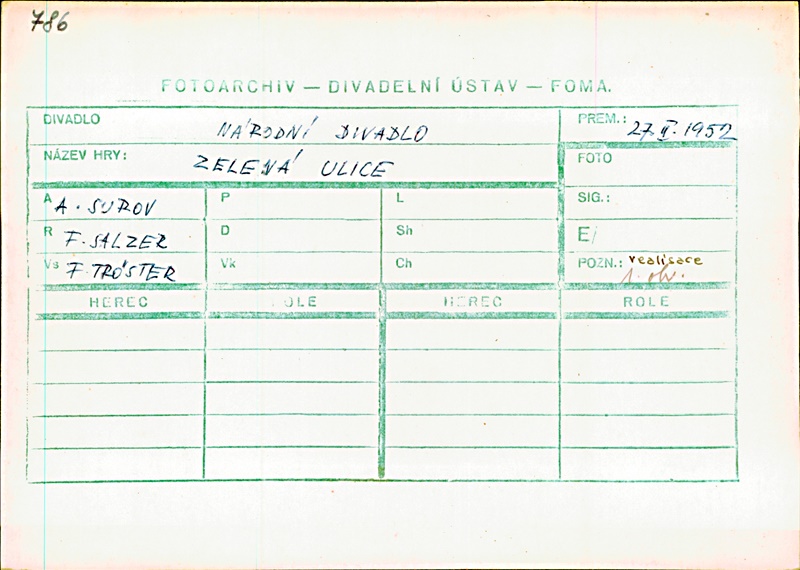 786
FOTOARCHIV — DIVADELNÍ ÚSTAV — FOMA.
DIVADLO NÁRODNÍ DIVADLO PREM.: 27. II. 1952
NÁZEV HRY: ZELENÁ ULICE FOTO
A A. SUROV P L SIG.:
R F. SALZER D Sh E/
Vs F. TRÖSTER Vk Ch POZN.: realisace
1. obr.
HEREC ROLE HEREC ROLE